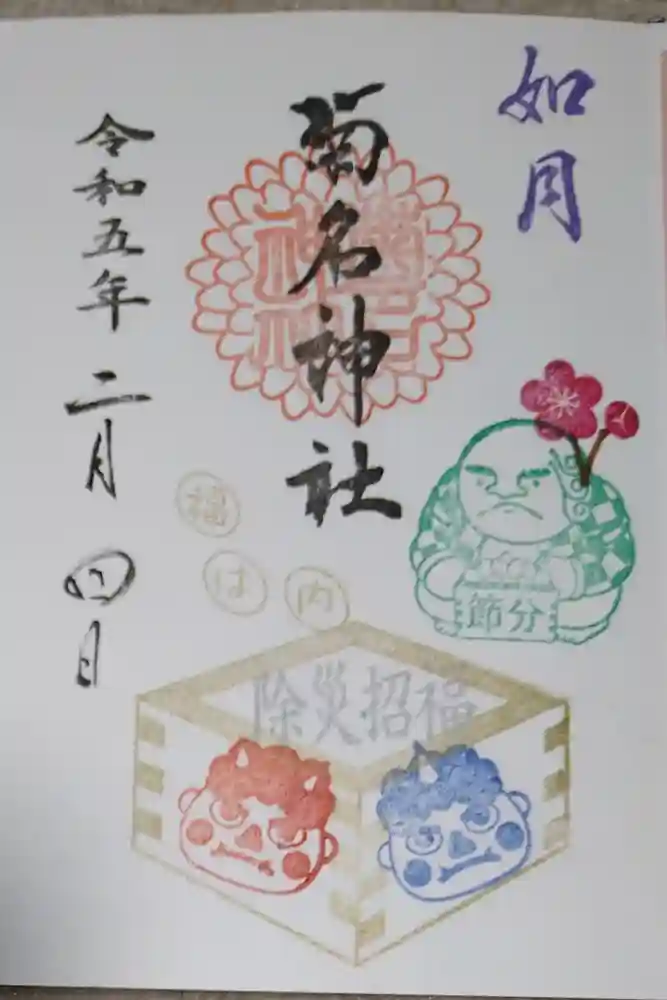 如月
菊名神社
令和五年 二月 四日
節分
福
は
内
除災招福